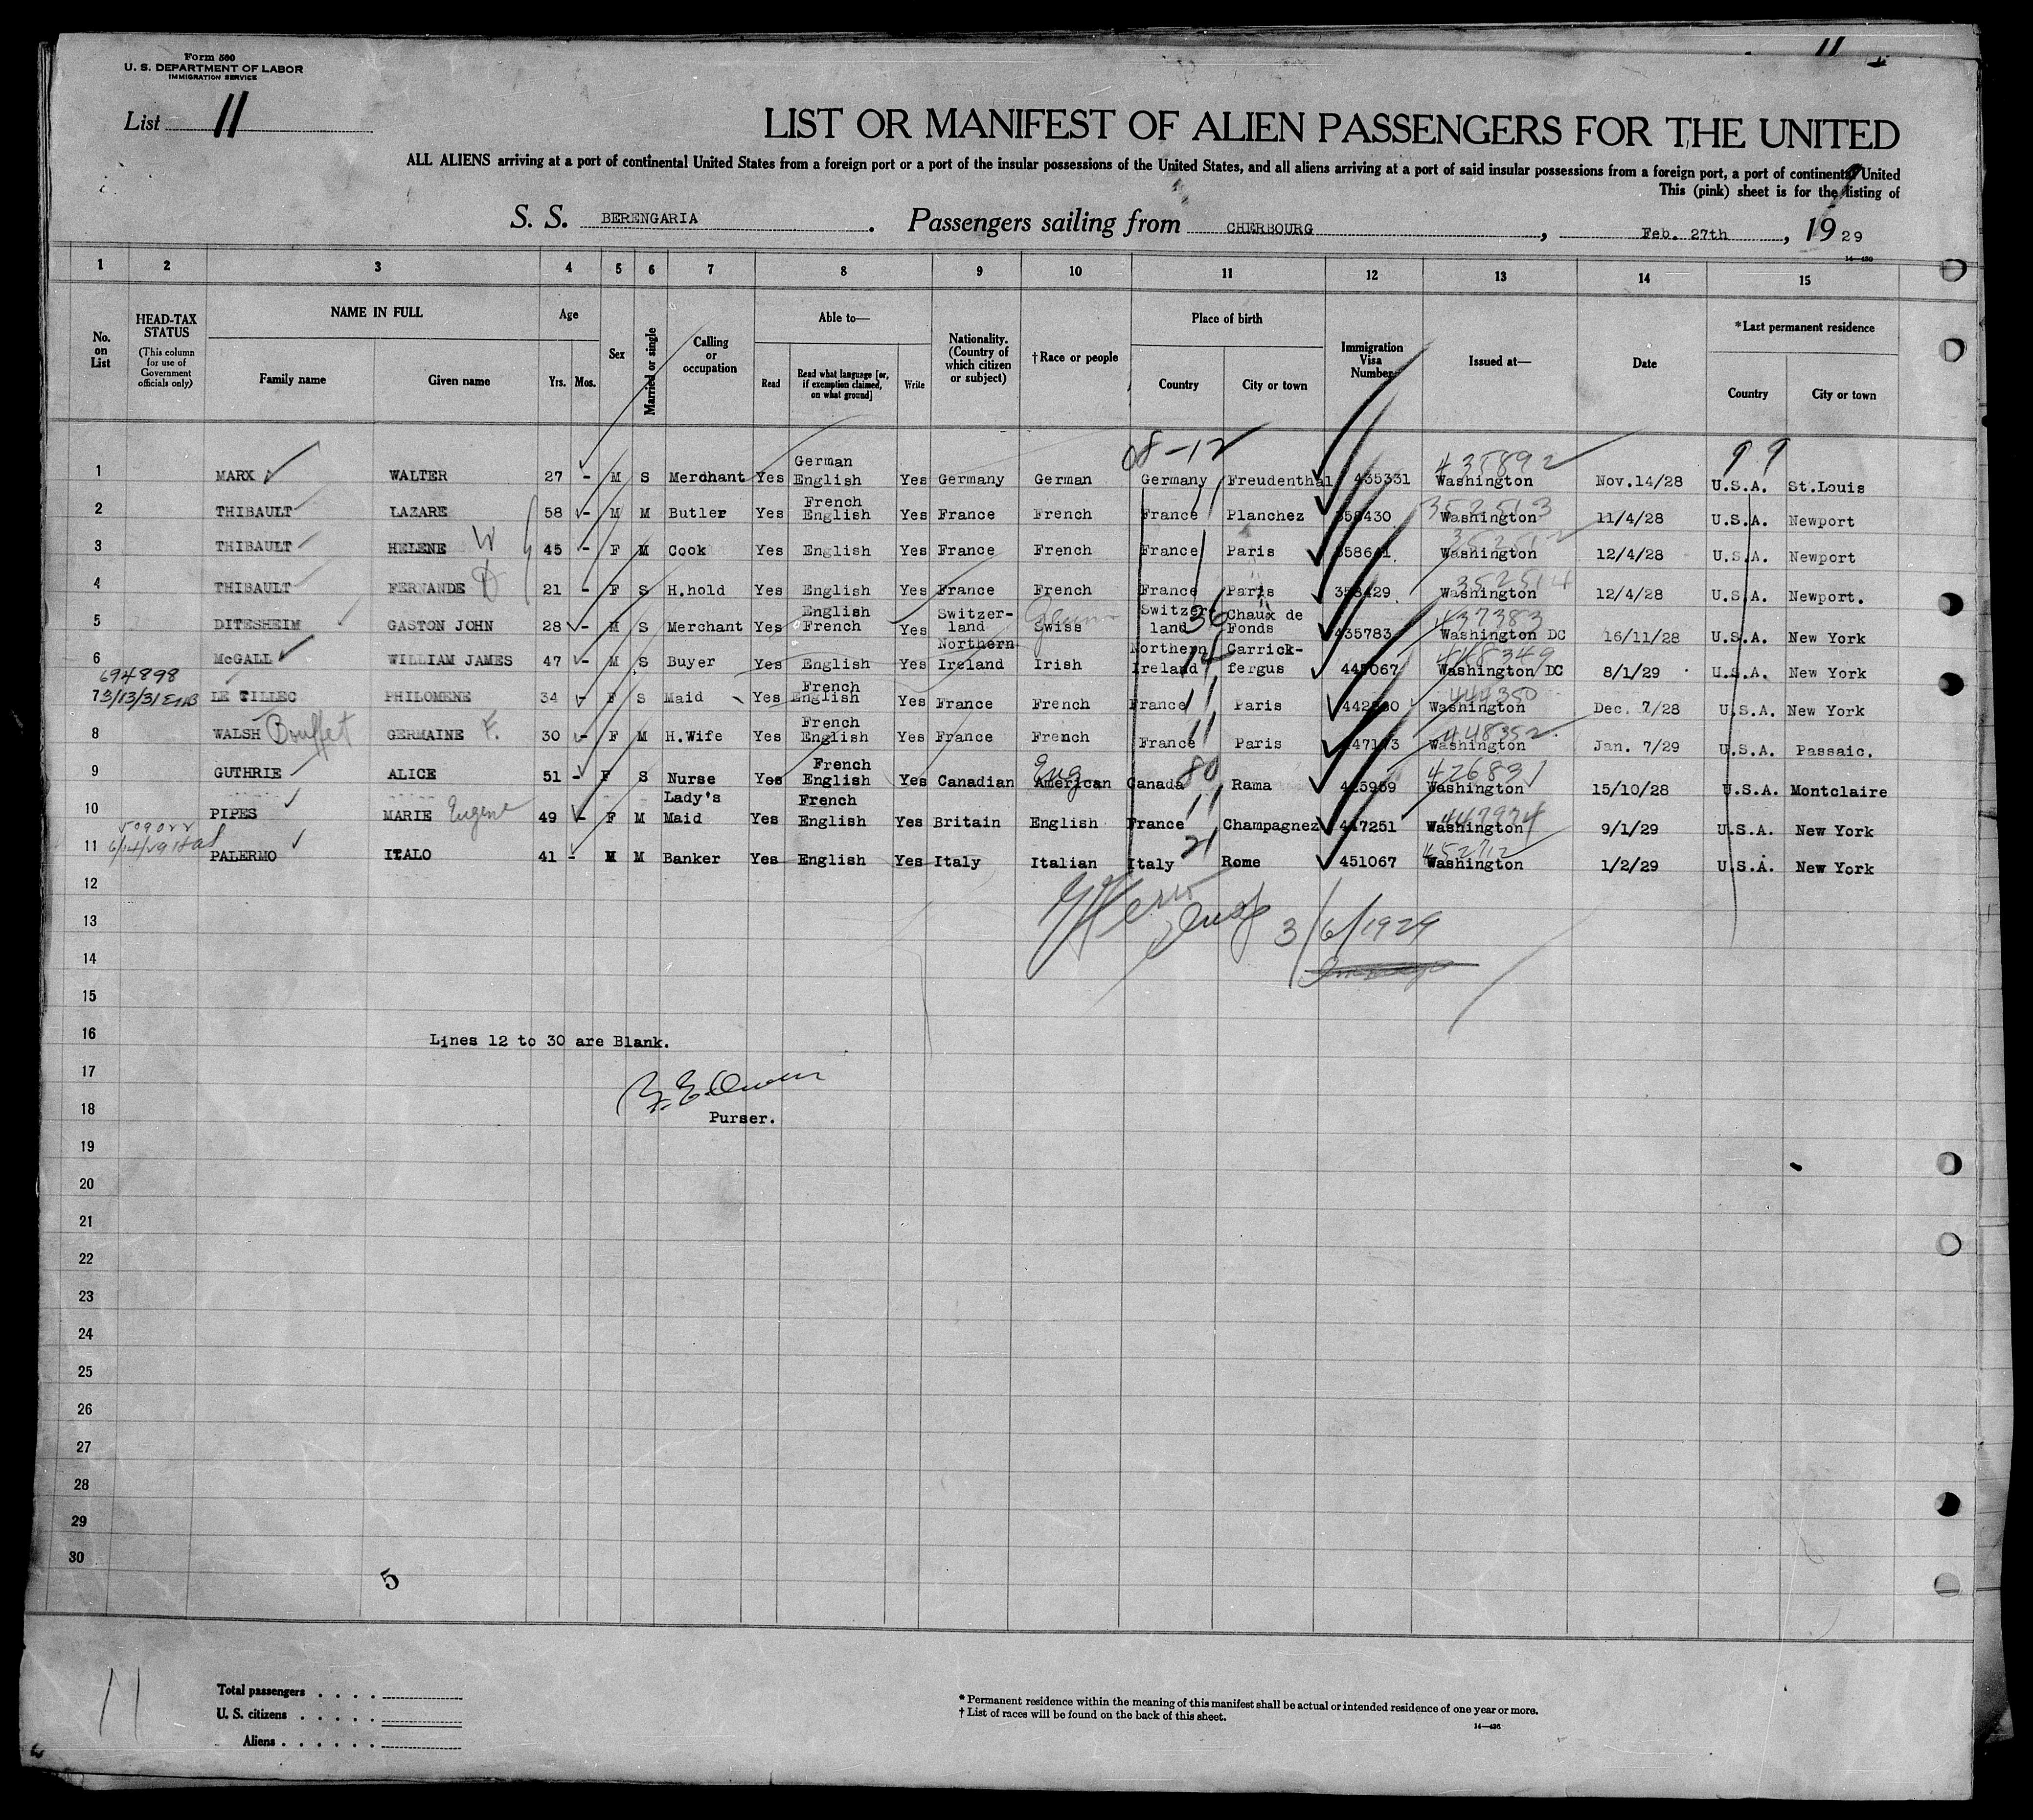 11
Form 500
U. S. DEPARTMENT OF LABOR
IMMIGRATION SERVICE
List 11
LIST OR MANIFEST OF ALIEN PASSENGERS FOR THE UNITED
ALL ALIENS arriving at a port of continental United States from a foreign port or a port of the insular possessions of the United States, and all aliens arriving at a port of said insular possessions from a foreign port, a port of continental United
This (pink) sheet is for the listing of
S. S. BERENGARIA. Passengers sailing from CHERBOURG, Feb. 27th, 1929
1 2 3 4 5 6 7 8 9 10 11 12 13 14 15
No. on List
HEAD-TAX STATUS
(This column for use of Government officials only)
NAME IN FULL
Family name Given name
Age
Yrs. Mos.
Sex
Married or single
Calling or occupation
Able to—
Read Read what language [or, if exemption claimed, on what ground] Write
Nationality. (Country of which citizen or subject)
†Race or people
Place of birth
Country City or town
Immigration Visa Number
Issued at—
Date
*Last permanent residence
Country City or town
08-12 99
1 MARX WALTER 27 - M S Merchant Yes German English Yes Germany German Germany Freudenthal 435331 435892 Washington Nov.14/28 U.S.A. St.Louis
2 THIBAULT LAZARE 58 - M M Butler Yes French English Yes France French France 11 Planchez 358430 352513 Washington 11/4/28 U.S.A. Newport
3 THIBAULT HELENE W 45 - F M Cook Yes English Yes France French France Paris 358641 Washington 12/4/28 U.S.A. Newport
4 THIBAULT FERNANDE D 21 - F S H.hold Yes English Yes France French France Paris 358429 352514 Washington 12/4/28 U.S.A. Newport.
5 DITESHEIM GASTON JOHN 28 - M S Merchant Yes English French Yes Switzer-land Swiss Switzer land 36 Chaux de Fonds 435783 437383 Washington DC 16/11/28 U.S.A. New York
6 McGALL WILLIAM JAMES 47 - M S Buyer Yes English Yes Northern Ireland Irish Northern Ireland 14 Carrick-fergus 445067 448349 Washington DC 8/1/29 U.S.A. New York
694898
7 3/13/31 LE TILLEC PHILOMENE 34 - F S Maid Yes French English Yes France French France 11 Paris 444350 Washington Dec. 7/28 U.S.A. New York
8 WALSH Bouffet GERMAINE F. 30 - F M H.Wife Yes French English Yes France French France 11 Paris 448352 Washington Jan. 7/29 U.S.A. Passaic.
9 GUTHRIE ALICE 51 - F S Nurse Yes French English Yes Canadian American Eng Canada 80 Rama 425959 426831 Washington 15/10/28 U.S.A. Montclaire
10 PIPES MARIE Eugene 49 - F M Lady's Maid Yes French English Yes Britain English France 11 Champagnez 447251 447974 Washington 9/1/29 U.S.A. New York
509022
6/14/29
11 PALERMO ITALO 41 - M M Banker Yes English Yes Italy Italian Italy 21 Rome 451067 452712 Washington 1/2/29 U.S.A. New York
12
13
3/6/1929
14
15
16
Lines 12 to 30 are Blank.
17
18
Purser.
19
20
21
22
23
24
25
26
27
28
29
30
5
11
Total passengers . . . .
U. S. citizens . . . . .
Aliens . . . . . .
* Permanent residence within the meaning of this manifest shall be actual or intended residence of one year or more.
† List of races will be found on the back of this sheet.
14—436